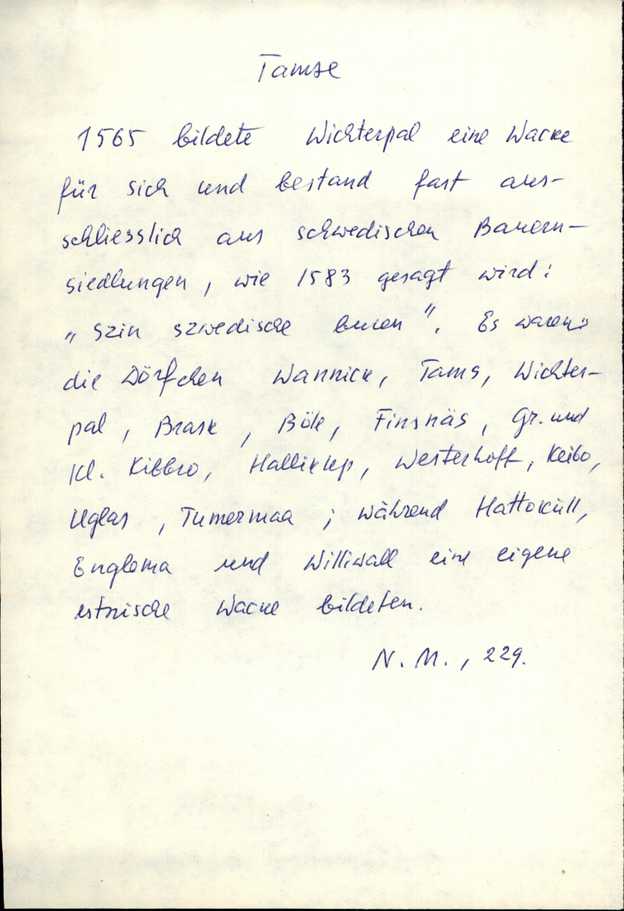 Tamse
1565 bildete Wichterpal eine Wacke
für sich und bestand fast aus-
schliesslich aus schwedischen Bauern-
siedlungen, wie 1583 gesagt wird:
„Szin szwedische buren". Es waren
die Dörfchen Wannick, Tams, Wichter-
pal, Brask, Böle, Finsnäs, Gr. und
Kl. Kibbro, Halliklep, Westerhoff, Keibo,
Uglas, Tumermaa; während Hattoküll,
Engloma und Williwall eine eigene
estnische Wacke bildeten.
N. M., 229.